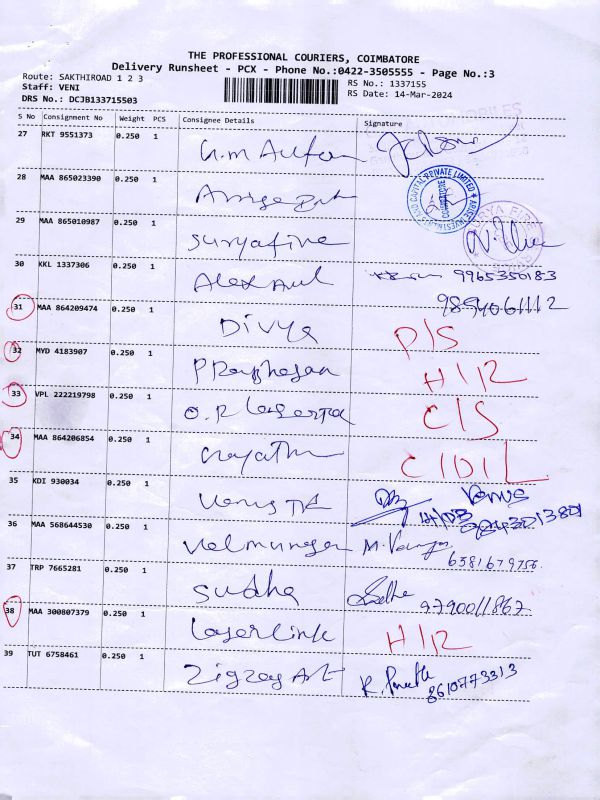 THE PROFESSIONAL COURIERS, COIMBATORE
Delivery Runsheet - PCX - Phone No.:0422-3505555 - Page No.:3
Route: SAKTHIROAD 1 2 3
RS No.: 1337155
Staff: VENI
RS Date: 14-Mar-2024
DRS No.: DCJB133715503
S No Consignment No Weight PCS Consignee Details Signature
27 RKT 9551373 0.250 1
28 MAA 865023390 0.250 1
29 MAA 865010987 0.250 1 Suryafire
30 KKL 1337306 0.250 1 9965350183
9894061112
31 MAA 864209474 0.250 1 Divya P/S
32 MYD 4183907 0.250 1 H/R
33 VPL 222219798 0.250 1 C/S
34 MAA 864206854 0.250 1 C/D/L
35 KDI 930034 0.250 1 Venus
36 MAA 568644530 0.250 1 Velmurugan M.
6381679756
37 TRP 7665281 0.250 1 Sudha
9790011867
38 MAA 300807379 0.250 1 Laserlink H/R
39 TUT 6758461 0.250 1 Zigzag Art
8610773313